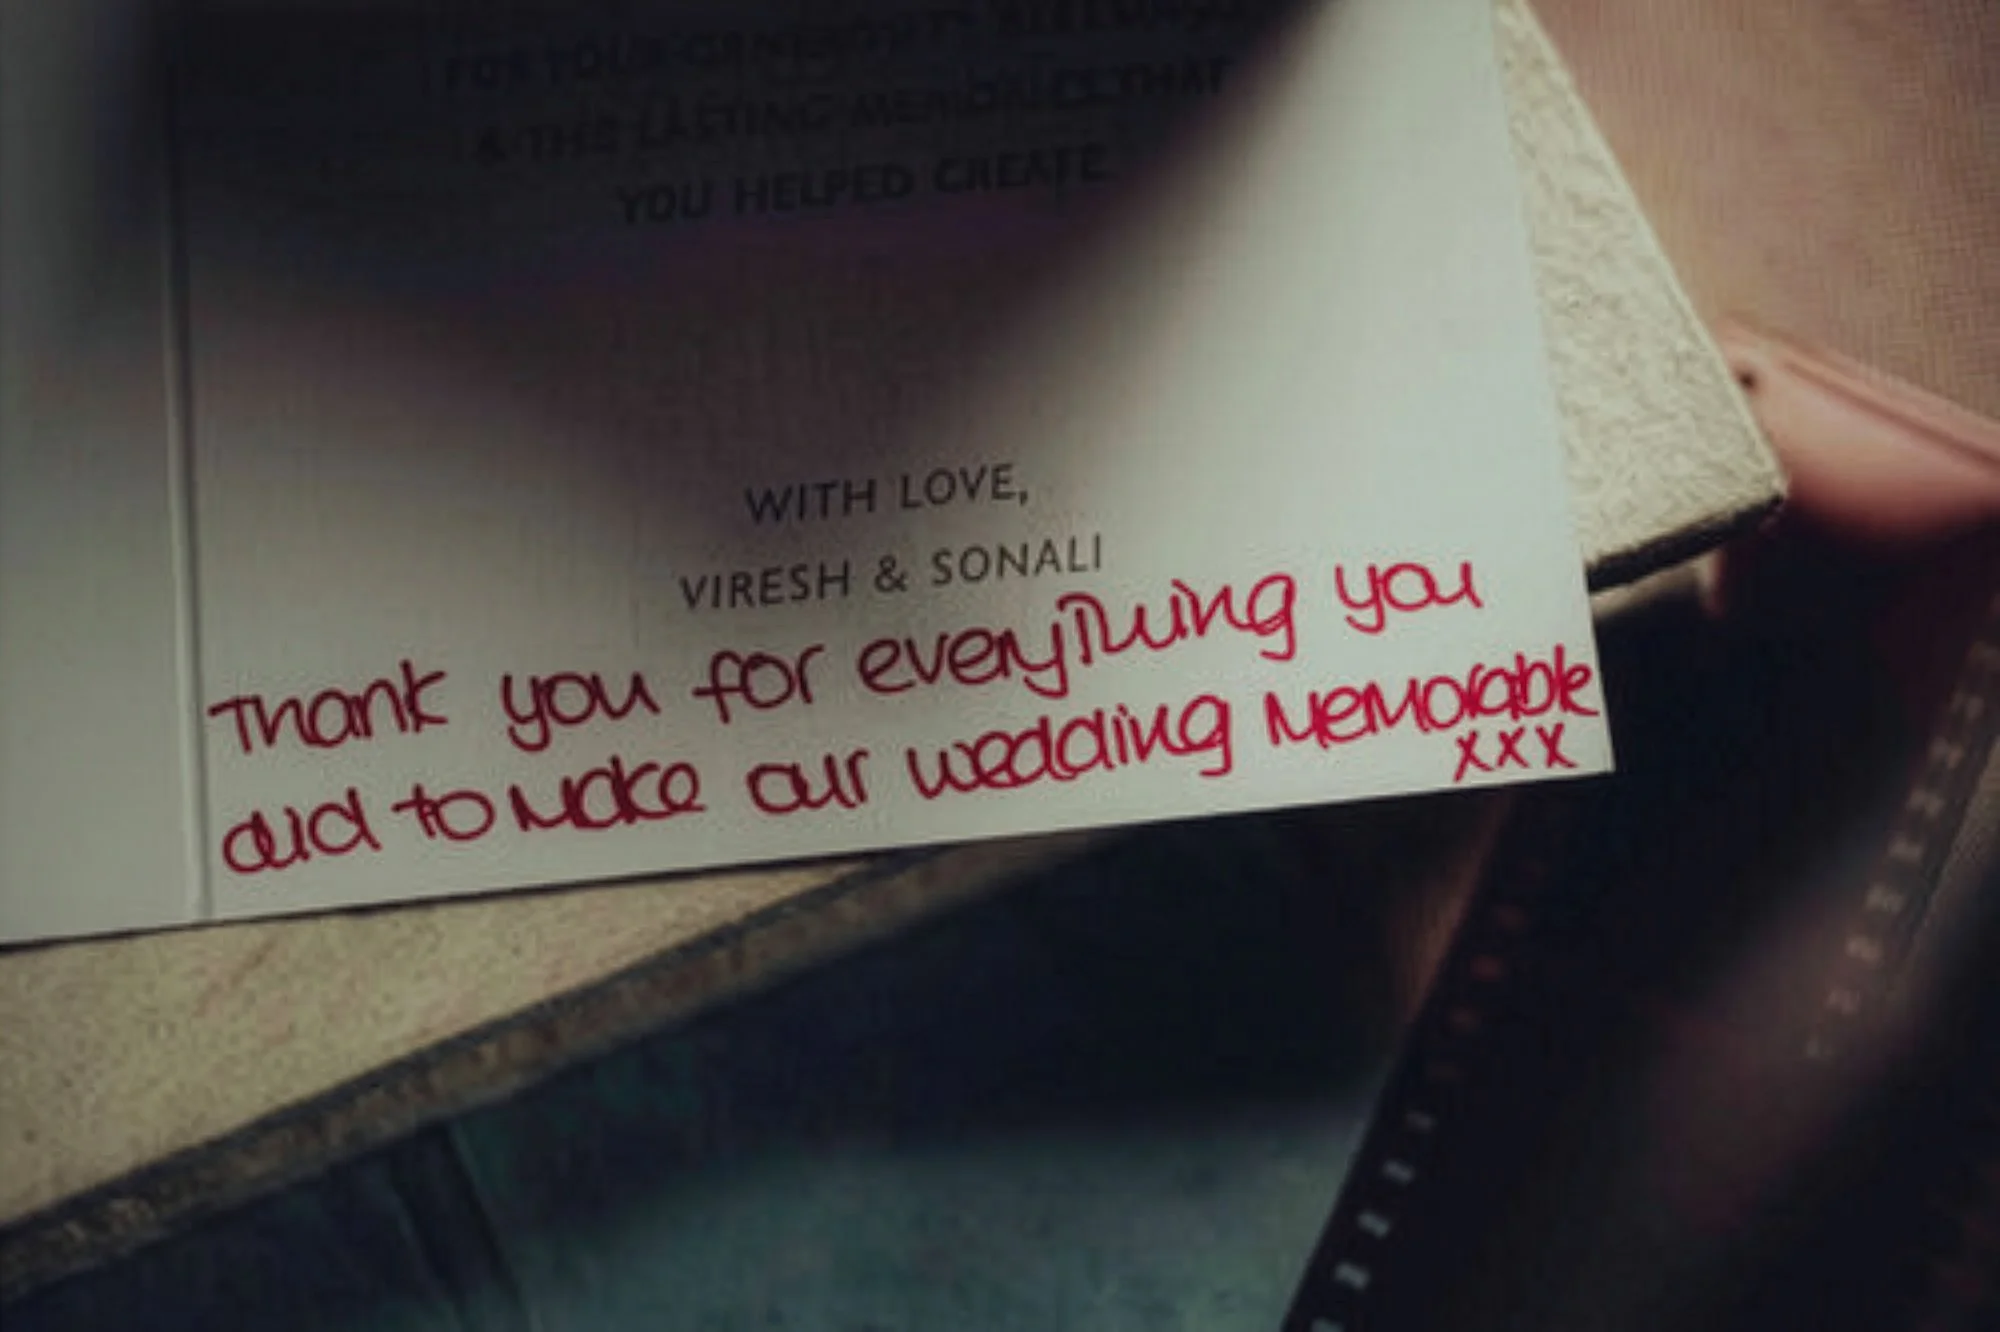 FOR YOUR GENEROSITY, BLESSINGS
& THE LASTING MEMORIES THAT
YOU HELPED CREATE
WITH LOVE,
VIRESH & SONALI
Thank you for everything you
did to make our wedding memorable
xxx